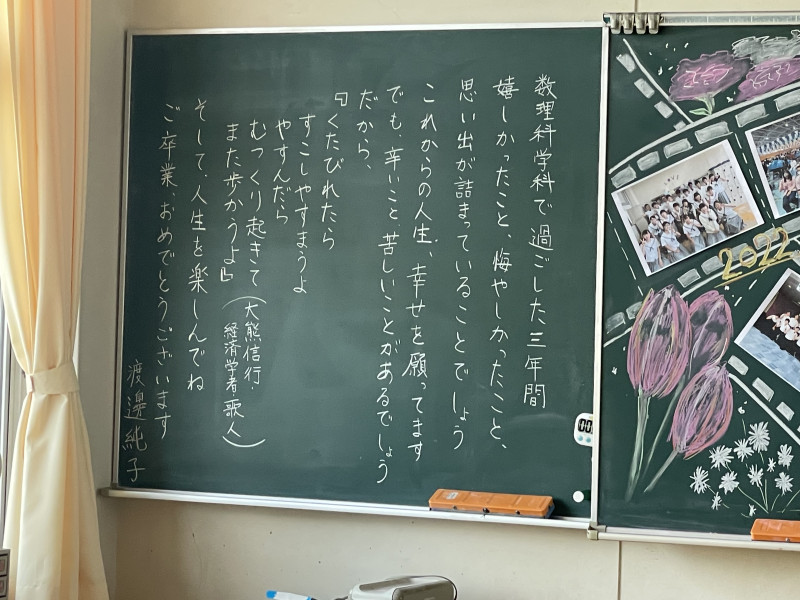 数理科学科で過ごした三年間
嬉しかったこと、悔やしかったこと、
思い出が詰まっていることでしょう
これからの人生、幸せを願ってます
でも、辛いこと、苦しいことがあるでしょう
だから、
『くたびれたら
すこしやすまうよ
やすんだら
むっくり起きて
また歩かうよ』
(大熊信行・
経済学者・歌人)
そして、人生を楽しんでね
ご卒業、おめでとうございます
渡邉純子
2022